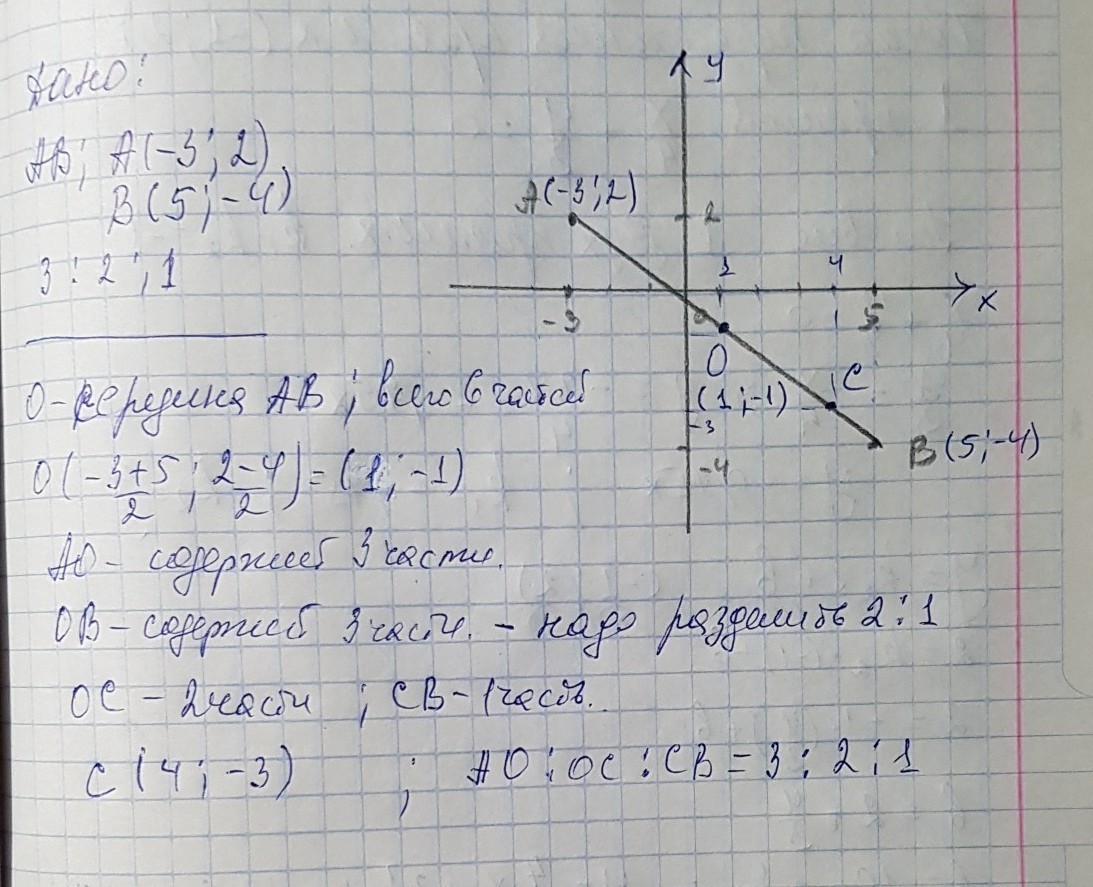 Дано:
АВ; А(-3; 2)
В(5; -4)
3 : 2 : 1
О - середина АВ; всего 6 частей
О(-3+5/2 ; 2-4/2) = (1; -1)
АО - содержит 3 части.
ОВ - содержит 3 части. - надо разделить 2 : 1
ОС - 2 части ; СВ - 1 часть.
С (4; -3) ; АО : ОС : СВ = 3 : 2 : 1
у
А(-3; 2)
2
1 4
-3 5 х
О
(1; -1) С
-3
-4 В(5; -4)